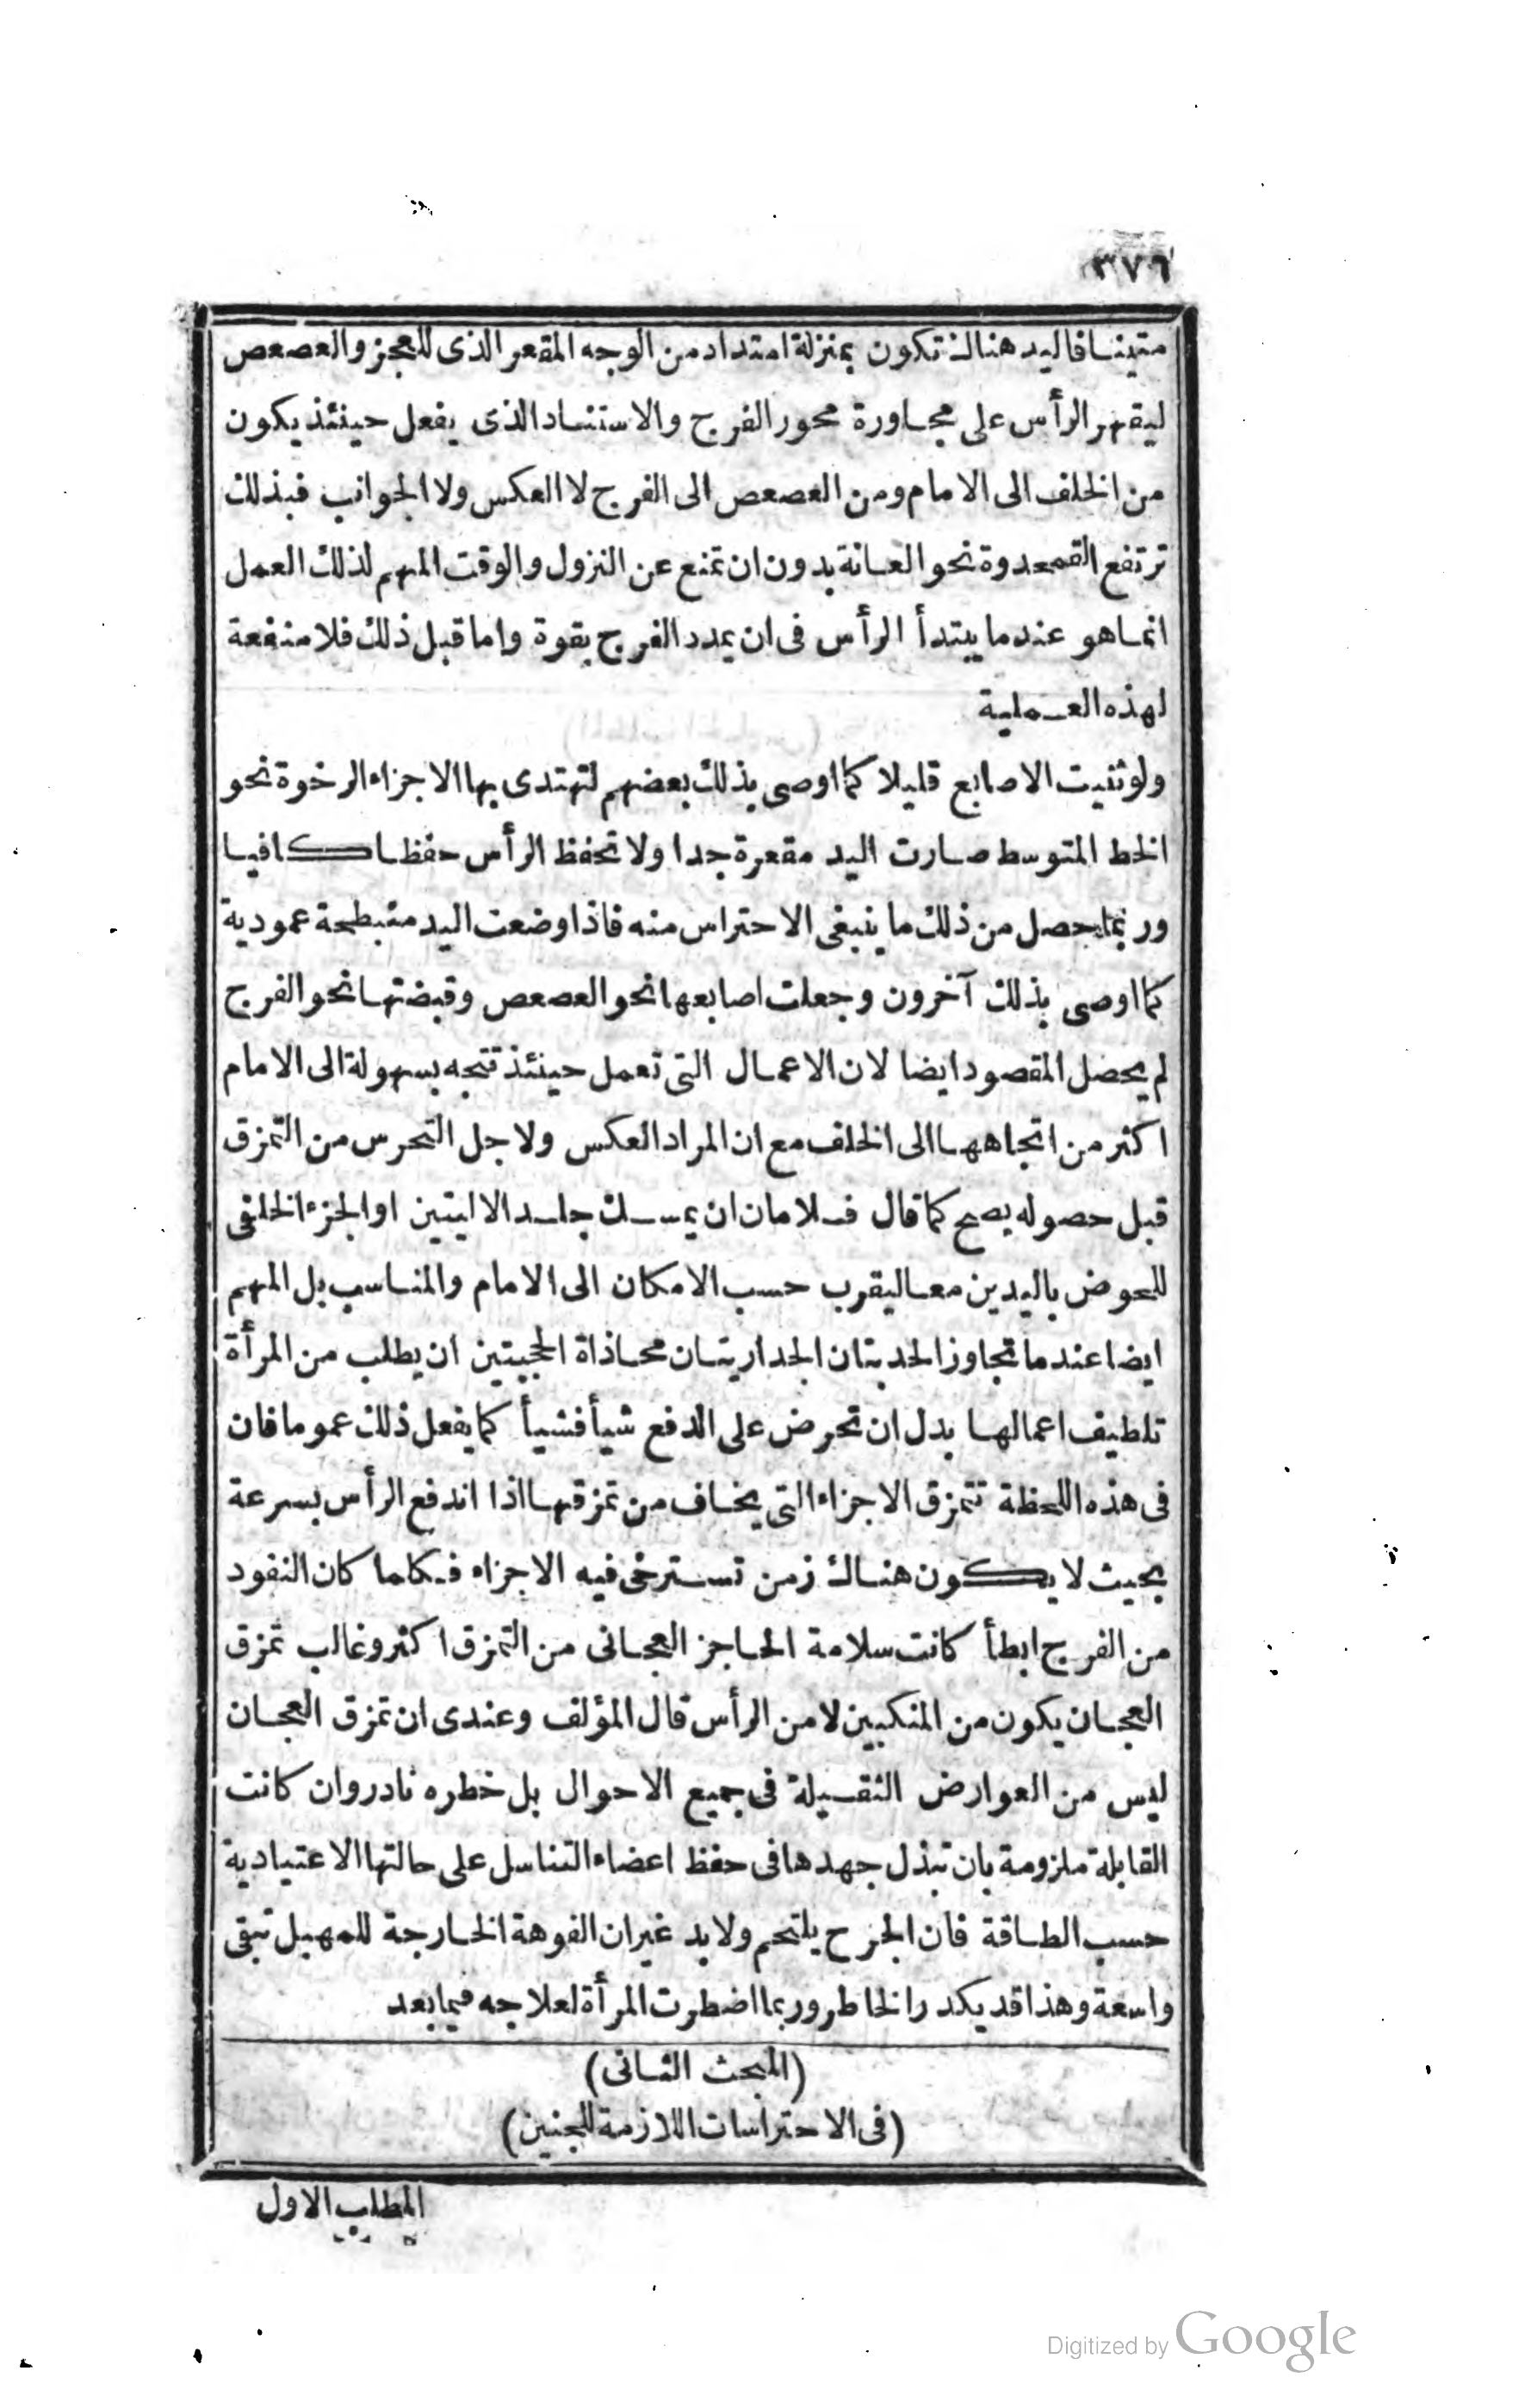 ٣٧٦
متينا فاليد هناك تكون بمنزلة امتداد من الوجه المقعر الذى للعجز والعصعص
ليقهر الرأس على مجاورة محور الفرج والاستناد الذى يفعل حينئذ يكون
من الخلف الى الامام ومن العصعص الى الفرج لا العكس ولا الجوانب فبذلك
ترتفع القمحدوة نحو العانة بدون ان تمنع عن النزول والوقت المهم لذلك العمل
انما هو عندما يبتدأ الرأس فى ان يمدد الفرج بقوة واما قبل ذلك فلا منفعة
لهذه العملية
ولو ثنيت الاصابع قليلا كما اوصى بذلك بعضهم لتهتدى بها الاجزاء الرخوة نحو
الخط المتوسط صارت اليد مقعرة جدا ولا تحفظ الرأس حفظا كافيا
وربما حصل من ذلك ما ينبغى الاحتراس منه فاذا وضعت اليد منبطحة عمودية
كما اوصى بذلك آخرون وجعلت اصابعها نحو العصعص وقبضتها نحو الفرج
لم يحصل المقصود ايضا لان الاعمال التى تعمل حينئذ تتجه بسهولة الى الامام
اكثر من اتجاهها الى الخلف مع ان المراد العكس ولاجل التحرس من التمزق
قبل حصوله يصح كما قال فلامان ان يمسك جلد الاليتين او الجزء الخلفى
للحوض باليدين معا ليقرب حسب الامكان الى الامام والمناسب بل المهم
ايضا عندما تجاوز الحدبتان الجداريتان محاذاة الحجبتين ان يطلب من المرأة
تلطيف اعمالها بدل ان تحرض على الدفع شيأ فشيأ كما يفعل ذلك عموما فان
فى هذه اللحظة تتمزق الاجزاء التى يخاف من تمزقها اذا اندفع الرأس بسرعة
بحيث لا يكون هناك زمن تسترخى فيه الاجزاء فكلما كان النفود
من الفرج ابطأ كانت سلامة الحاجز العجانى من التمزق اكثر وغالب تمزق
العجان يكون من المنكبين لا من الرأس قال المؤلف وعندى ان تمزق العجان
ليس من العوارض الثقيلة فى جميع الاحوال بل خطره نادر وان كانت
القابلة ملزومة بان تبذل جهدها فى حفظ اعضاء التناسل على حالتها الاعتيادية
حسب الطاقة فان الجرح يلتحم ولا بد غير ان الفوهة الخارجة للمهبل تبقى
واسعة وهذا قد يكدر الخاطر وربما اضطرت المرأة لعلاجه فيما بعد
(المبحث الثانى)
(فى الاحتراسات اللازمة للجنين)
المطلب الاول
Digitized by Google